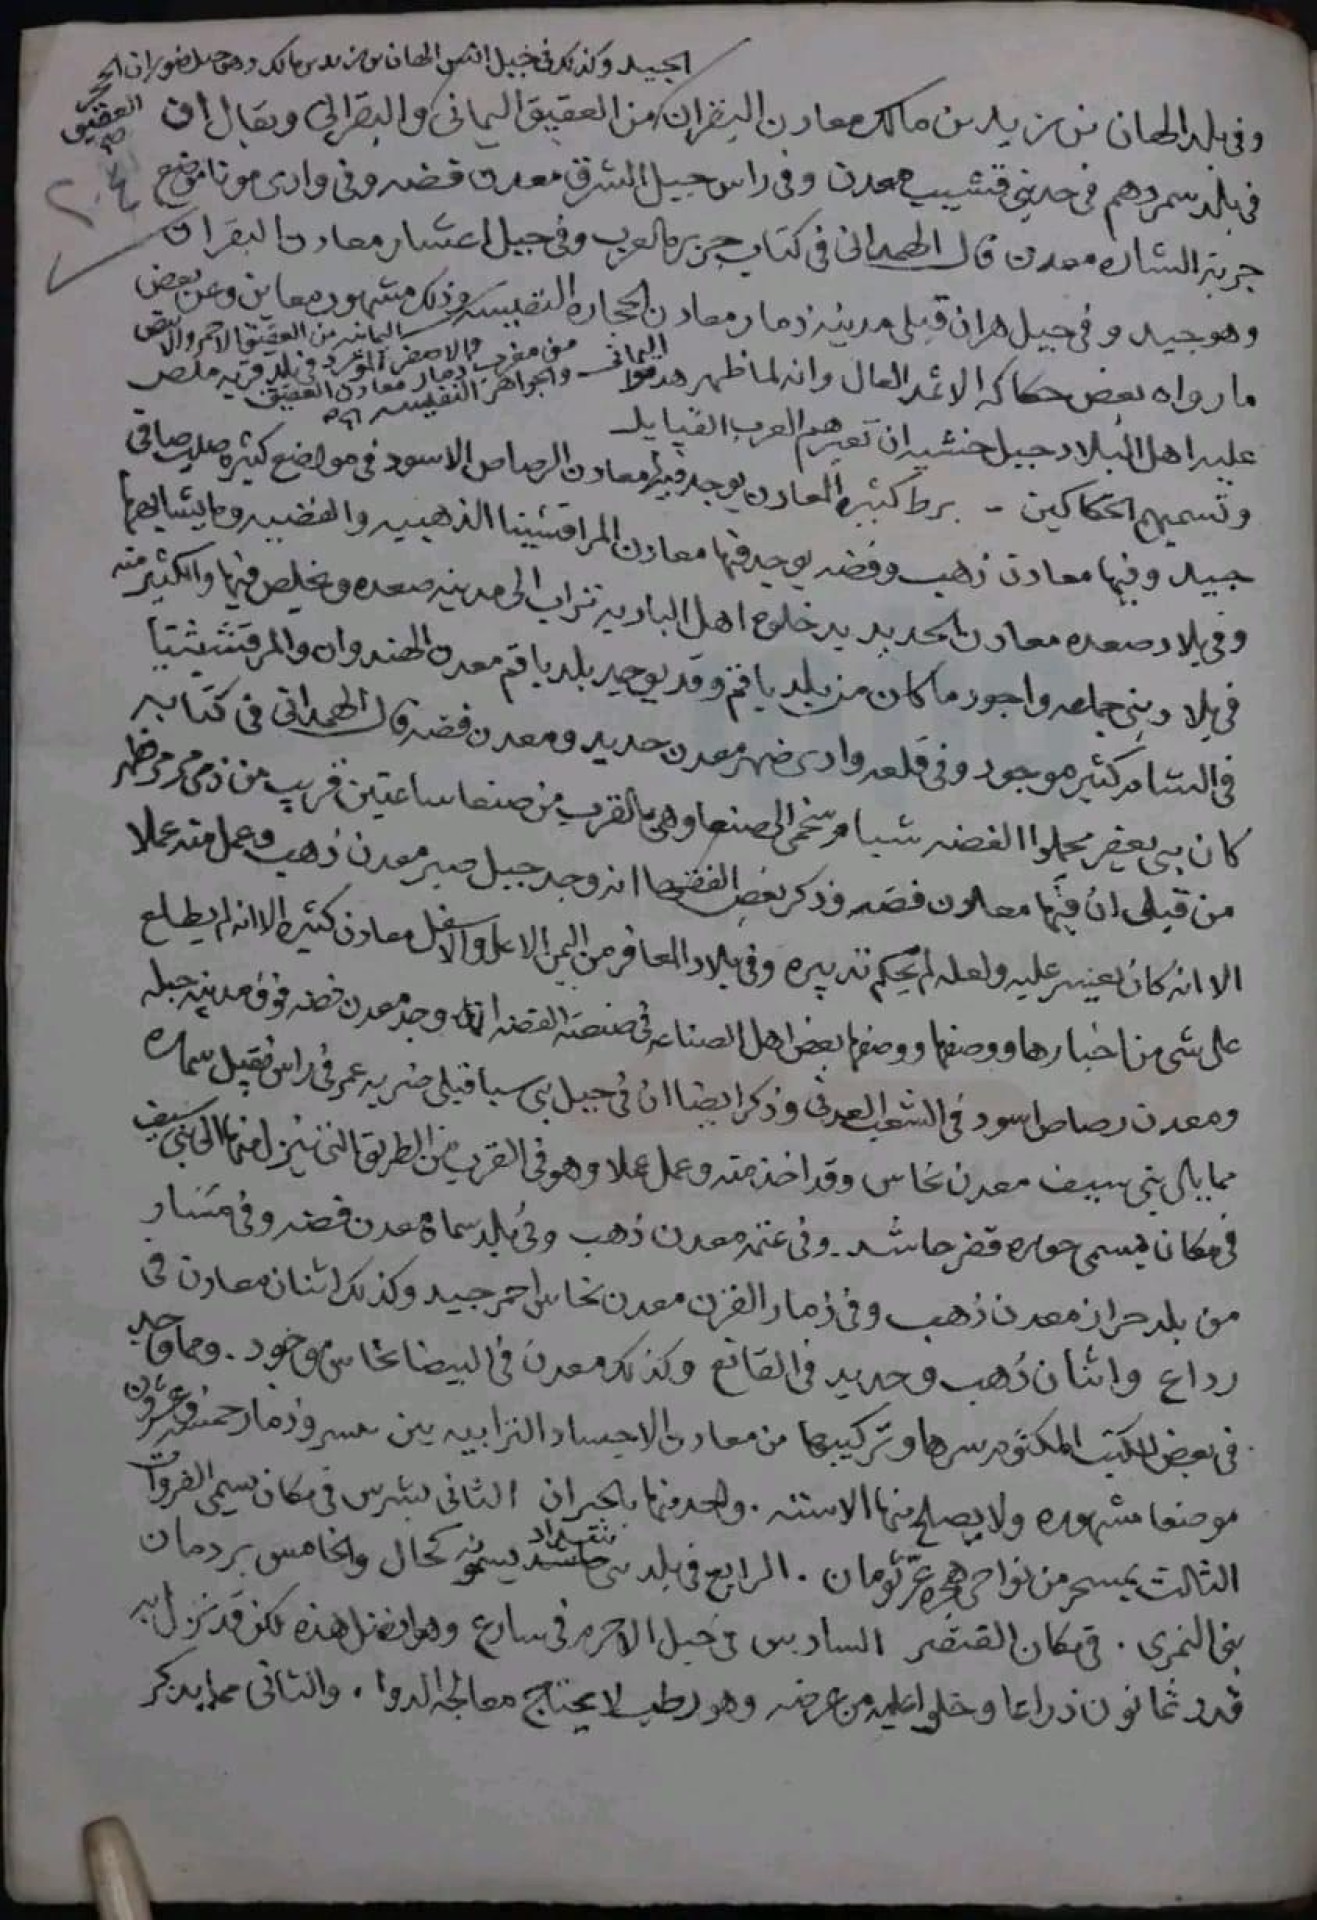 الجيد وكذلك في جبل انس الهان بن زيد بن مالك وهي جبل ضوران الحجر
العقيق صح
وفي بلد الهان بن زيد بن مالك معادن البقران من العقيق اليماني والبقراني ويقال ان
في بلد سمر دهم في حد بني قشيب معدن وفي راس جبل الشرق معدن فضه وفي وادي مونا موضع
جربة الشاره معدن قال الهمداني في كتاب جزيرة العرب وفي جبل اعشار معادن البقران
وهو جيد وفي جبل هران قبلي مدينه ذمار معادن الحجاره النفيسه وذلك مشهور معاين وعن بعض
اليمانيه من العقيق الاحمر والابيض
والاصفر المورد في بلد قريه ملص
من مغرب ذمار معادن العقيق
اليماني والجواهر النفيسه
ما رواه بعض حكاكه الاثمد العال وانه لما ظهر هدموا
عليه اهل البلاد جبل خشيه ان تعيرهم العرب القبايل
وتسميهم الحكاكين - برط كثيره المعادن يوجد فيها معادن الرصاص الاسود في مواضع كثيره صلب صافي
جيد وفيها معادن ذهب وفضه يوجد فيها معادن المرقشيثا الذهبيه والفضيه وما يشابهها
وفي بلاد صعده معادن الحديد يدخلوه اهل الباديه تراب الى مدينه صعده ويخلص فيها والكثير منه
في بلاد بني جماعه واجود ما كان من بلد يافم وقد يوجد بلد باقم معدن الهندوان والمرقشيثيا
في الشام كثير موجود وفي قلعه وادي ضهر معدن حديد ومعدن فضه قال الهمداني في كتابه
كان بني يعفر يحملوا الفضه شبام سخيم الى صنعا وهي بالقرب من صنعا ساعتين قريب من ذي مرمر
من قبلي ان فيها معادن فضه وذكر بعض الفقها انه وجد جبل صبر معدن ذهب وعمل منه عملا
الا انه كان يعسر عليه ولعله لم يحكم تدبيره وفي بلاد المعافر من اليمن الاعلى والاسفل معادن كثيره الا انه لم يطلع
على شي من اخبارها ووصفها ووصفها بعض اهل الصناعه في صنعة الفضه انه وجد معدن فضه فوق مدينه جبله
ومعدن رصاص اسود في الشعب العدني وذكر ايضا ان في جبل بني سبا قبلي ضربه عمر في راس نقيل سماره
مما يلي بني سيف معدن نحاس وقد اخذ منه وعمل عملا وهو في القرب من الطريق التي ينزل منها الى بني سيف
في مكان يسمى حوره قفر حاشد . وفي عتمه معدن ذهب وفي بلد سماه معدن فضه وفي مسار
من بلد حراز معدن ذهب وفي ذمار القرن معدن نحاس احمر جيد وكذلك اثنان معادن في
رداع واثنان ذهب وحديد في القانع وكذلك معدن في البيضا نحاس موجود . ومما وجد
في بعض الكتب المكتوم سرها وتركيبها من معادن الاجساد الترابيه بين وذمار خمسه وعشرون
موضعا مشهوره ولا يصلح منها الا سته . واحد منها بالحيران الثاني بشرس في مكان يسمى الفروات
الثالث يمسحر من نواحي هجره عر ثومان . الرابع في بلد بني حاشد يسمونه كحال والخامس بردمان
بني النمري . في مكان القنقصر السادس في جبل الاحرم في سارع وهو افضل هذه لكن قد نزل به
قدر ثمانون ذراعا وخلوا عليه من عرضه وهو رطب لا يحتاج معالجه الدوا . والثاني مما يذكر